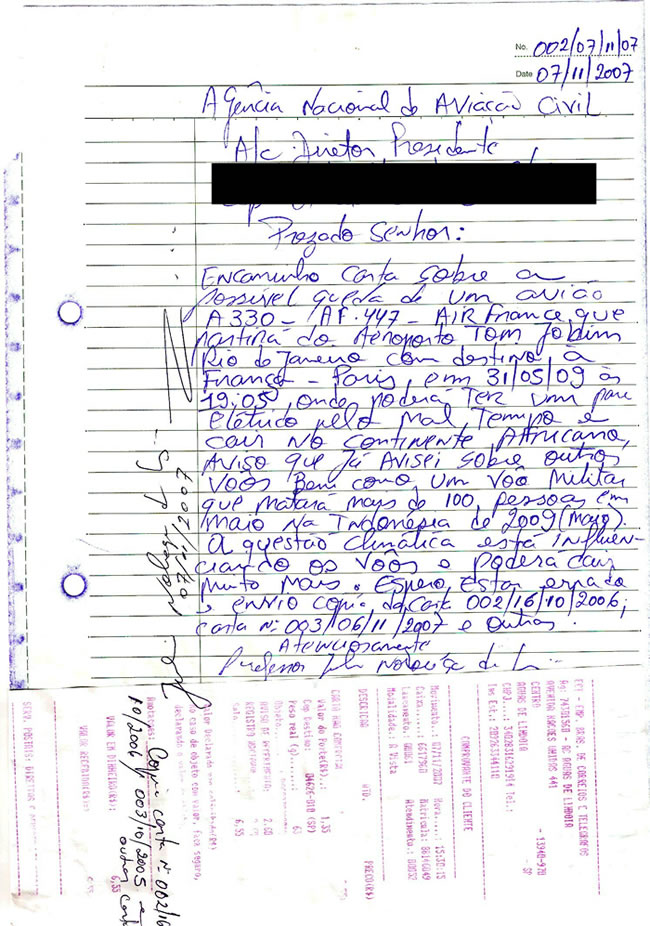 No. 002/07/11/07
Date 07/11/2007
Agência Nacional de Aviação Civil
A/c Diretor Presidente
Prezado Senhor:
Encaminho carta sobre a
possível queda de um avião
A330 - AF.447 - AIR France que
partirá do Aeroporto Tom Jobim
Rio de Janeiro com destino a
França - Paris, em 31/05/09 às
19:05, onde poderá ter um pane
elétrico pelo mal tempo e
cair no continente Africano,
aviso que já avisei sobre outros
vôos bem como um vôo militar
que matará mais de 100 pessoas em
maio na Indonésia de 2009 (maio).
A questão climática está influen-
ciando os vôos e poderá cair
muito mais. Espero estar errado
e envio copia da carta 002/16/10/2006;
carta nº 003/06/11/2007 e outros.
Atenciosamente
Professor
07/11/2007
Copia carta nº 002/16
10/2006 003/10/2005 e
outras
ECT - EMP. BRAS. DE CORREIOS E TELEGRAFOS
Ag: 74301360 - AC AGUAS DE LINDOIA
441
CENTRO - 13940-970
AGUAS DE LINDOIA - SP
COMPROVANTE DO CLIENTE
Movimento..: 07/11/2007 Hora.....: 15:30:15
Modalidade.: A Vista
DESCRICAO QTD. PRECO(R$)
Valor do Porte(R$)..: 1.35
Cep Destino: 04626-910 (SP)
Peso real (g)
AVISO DE RECEBIMENTO: 2.60
6.55
Valor Declarado
no caso de objeto com valor,
VALOR EM DINHEIRO(R$):
VALOR RECEBIDO(R$):
6,55
SERV. POSTAIS: DIREITOS E